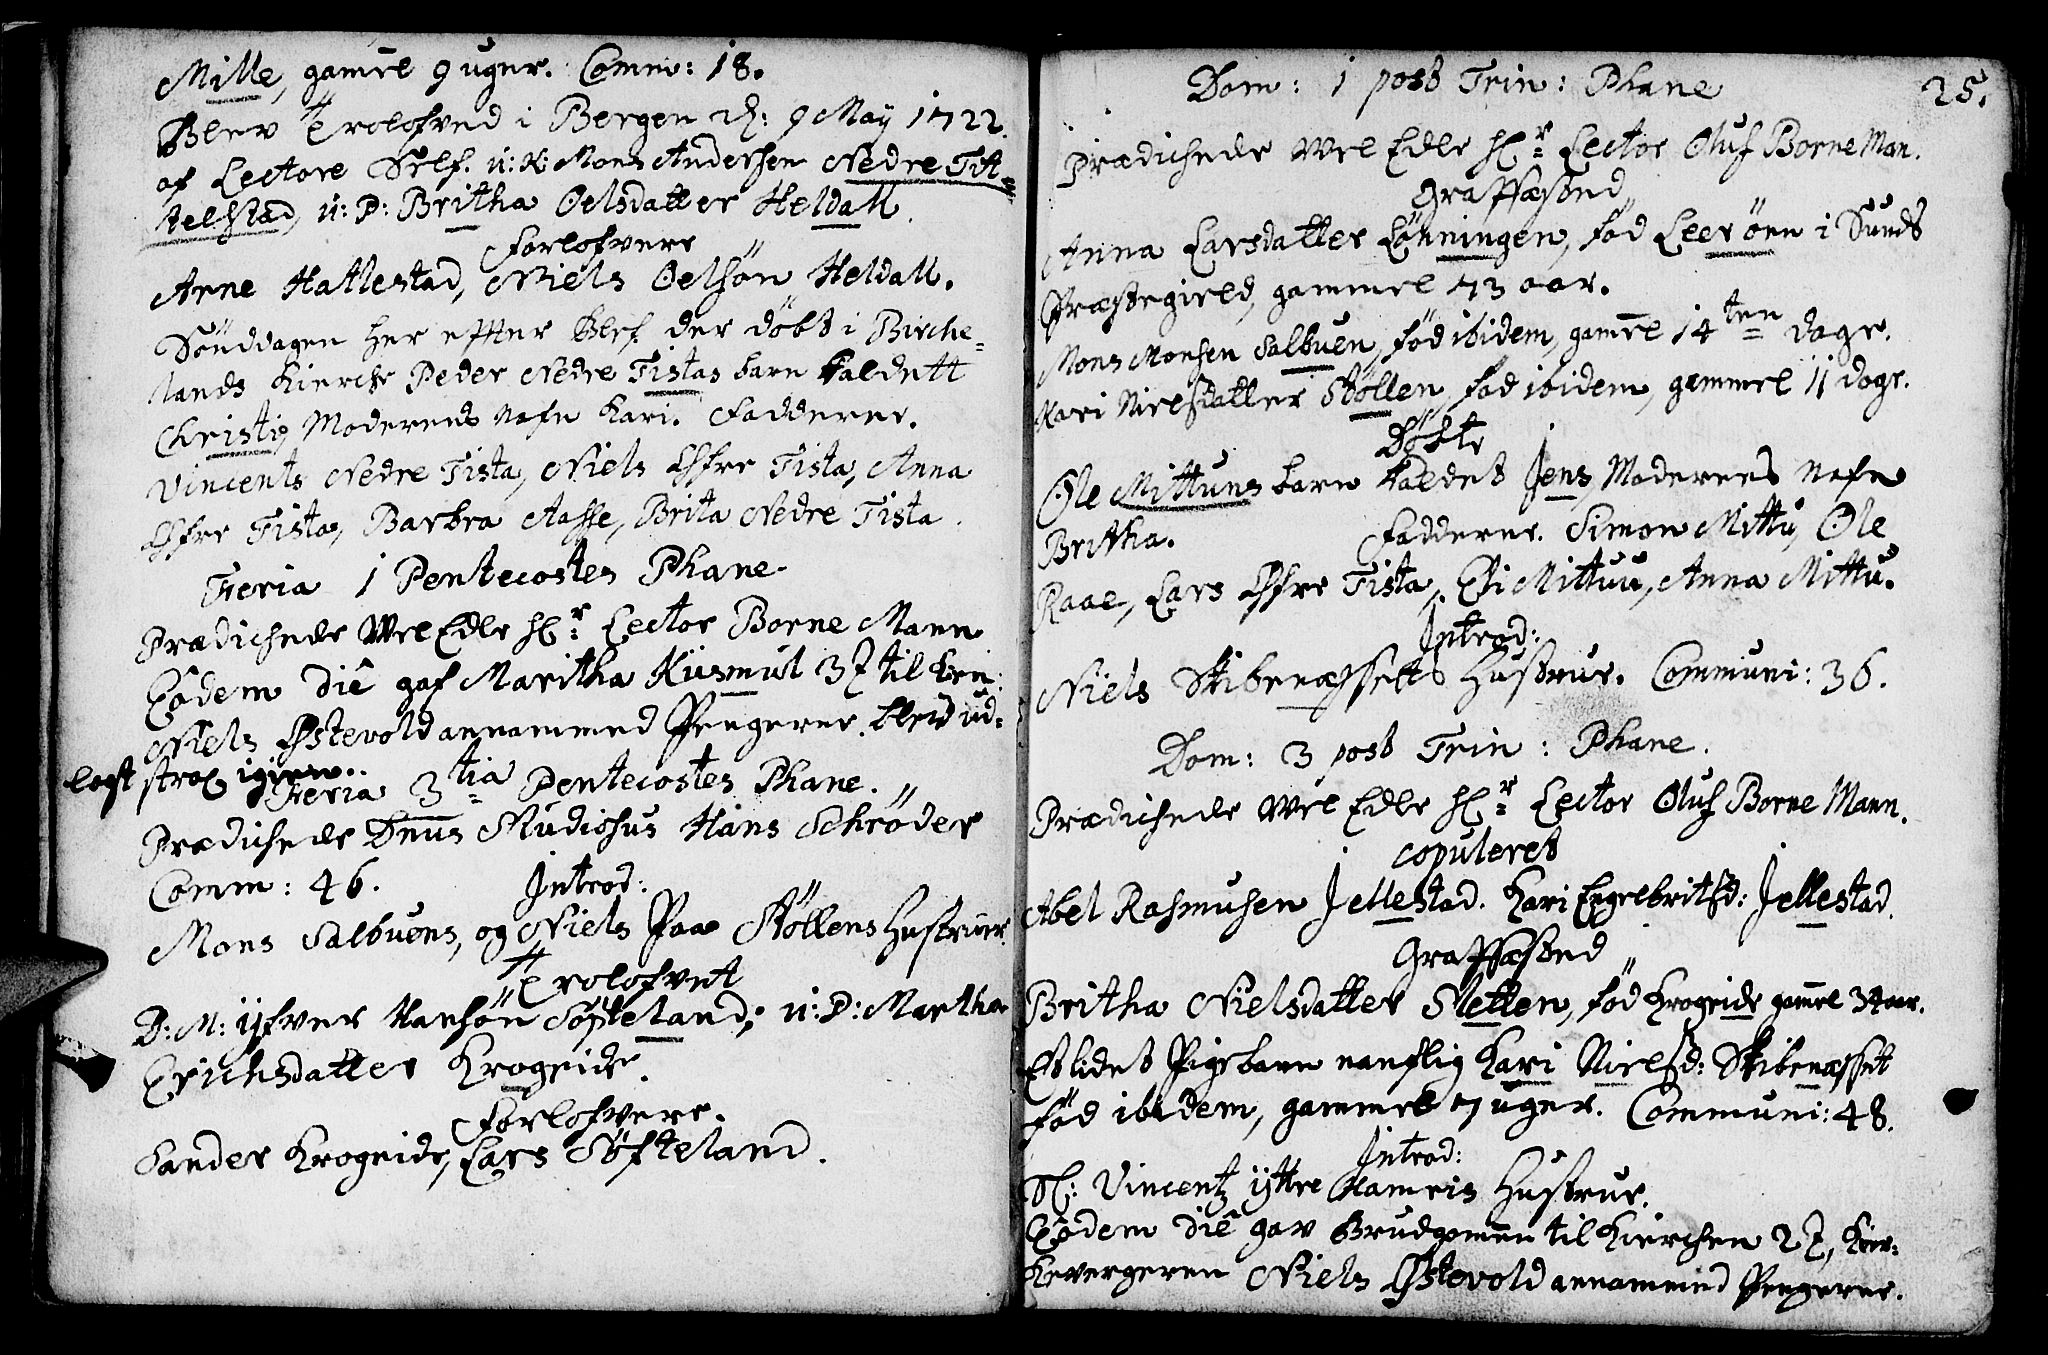 Mille, gamel 9 uger. Comm: 18.
Blev Trolofved i Bergen d: 9 Maij 1722.
af Lectore Self. u: K: Mons Andersen Nedre Tit=
telstad, u: P: Britha Oelsdatter Heldall.
Forlofvere
Arne Hatlestad, Niels Oelsön Heldall.
Sönddagen her effter blef der döbt i Birche=
lands Kierche Peder Nedre Tistas barn kaldett
Christi, Moderens nafn Kari. Faddere.
Vincents Nedre Tista, Niels Øfre Tista, Anna
Øfre Tista, Barbra Aasse, Brita Nedre Tista.
Feria 1 Pentecostes Phane.
Prædichede Wel Edle Hr: Lector Borne Mann
Eodem die gaf Maritha Kiismul 3 til Kir:
Niels Østevold annammed Pengerne. blev ud=
lagt strax igien.
Feria 3tia Pentecostes Phane.
Prædichede Dnus Studiosus Hans Schrøder
Comm: 46.
Introd:
Mons Salbuens, og Niels Paa Støllens Hustruer.
Trolofvet
D: M: ijfver Hansön Søfteland, u: P: Martha
Erichsdatter Krogeide.
Forlofvere.
Sander Krogeide, Lars Søfteland.
Dom: 1 post Trin: Phane
25.
Prædichede Wel Edle Hr: Lector Oluf Borne Man.
Graffæsted
Anna Larsdatter Lönningen, föd Leeröen i Sunds
Præstegield, gammel 73 aar.
Mons Monsen Salbuen, föd ibidem, gamel 14ten dage.
Kari Nielsdatter Støllen, föd ibidem, gammel 11 dage.
Döbte
Ole Mittuns barn kaldet Jens, Moderens nafn
Britha. Faddere. Simon Mittu, Ole
Raae, Lars Øfre Tista, Eli Mittuu, Anna Mittu.
Introd:
Niels Skibenæssetts Hustrue. Communi: 36.
Dom: 3 post Trin: Phane.
Prædichede Wel Edle Hr: Lector Oluf Borne Mann.
copuleret
Abel Rasmusen Jellestad. Kari Engelbritsd: Jellestad.
Graffæsted
Britha Nielsdatter Sletten, föd Krogeide gamel 34 aar.
Et lidet Pigebarn nanflig Kari Nielsd: Skibenæsset
föd ibidem, gammel 7 uger. Communi: 48.
Introd:
Sl: Vincentz ijttre Hamris Hustrue.
Eodem die gav Brudgomen til Kierchen 2, Kir=
kevergeren Niels Østevold annammed Pengerne.